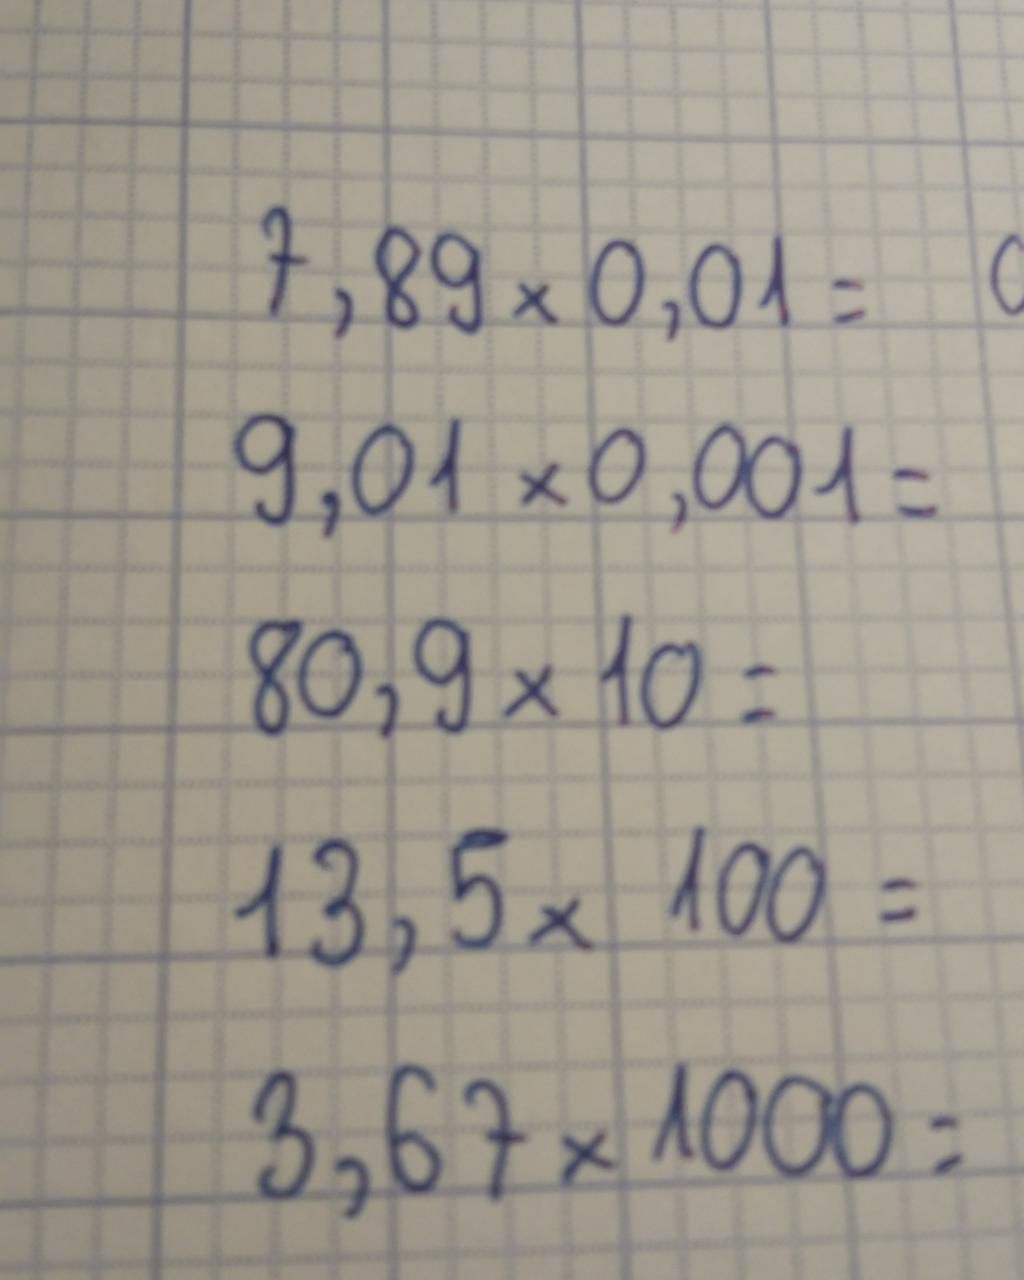 7,89 x 0,01 = 0
9,01 x 0,001 =
80,9 x 10 =
13,5 x 100 =
3,67 x 1000 =